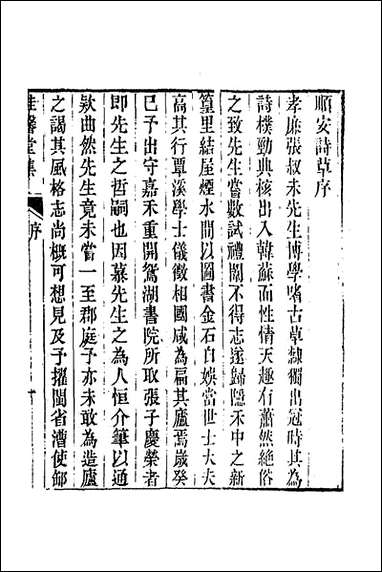 順安詩草序
孝廉張叔未先生博學嗜古草隸獨出冠時其為
詩樸勁典核出入韓蘇而性情天趣有蕭然絶俗
之致先生嘗數試禮闈不得志遂歸隱禾中之新
篁里結屋煙水間以圖書金石自娛當世士大夫
高其行覃溪學士儀徵相國咸為扁其廬焉歲癸
巳予出守嘉禾重開鴛湖書院所取張子慶榮者
即先生之哲嗣也因慕先生之為人恒介筆以通
欵曲然先生竟未嘗一至郡庭予亦未敢為造廬
之謁其風格志尚概可想見及予擢閩省漕使郵
桂馨堂集
序